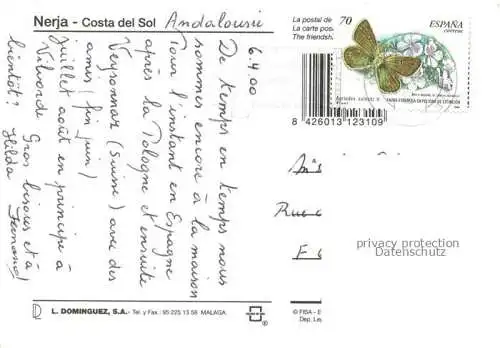 Nerja - Costa del Sol Andalousie
6.4.00
De temps en temps nous
sommes encore à la maison
Pour l'instant en Espagne
après la Pologne et ensuite
Veysonnaz (Suisse) avec des
amis (fin juin)
juillet août en principe à
Vilvorde Gros bisous et à
bientôt? Hilda
La postal de
La carte pos
The friends
70 ESPAÑA
CORREOS
FAUNA ESPAÑOLA EN PELIGRO DE EXTINCIÓN
8 426013 123109
Rue
privacy protection
Datenschutz
L. DOMINGUEZ, S.A.- Tel. y Fax.: 95 225 13 58 MALAGA
© FISA - E
Dep. Leg